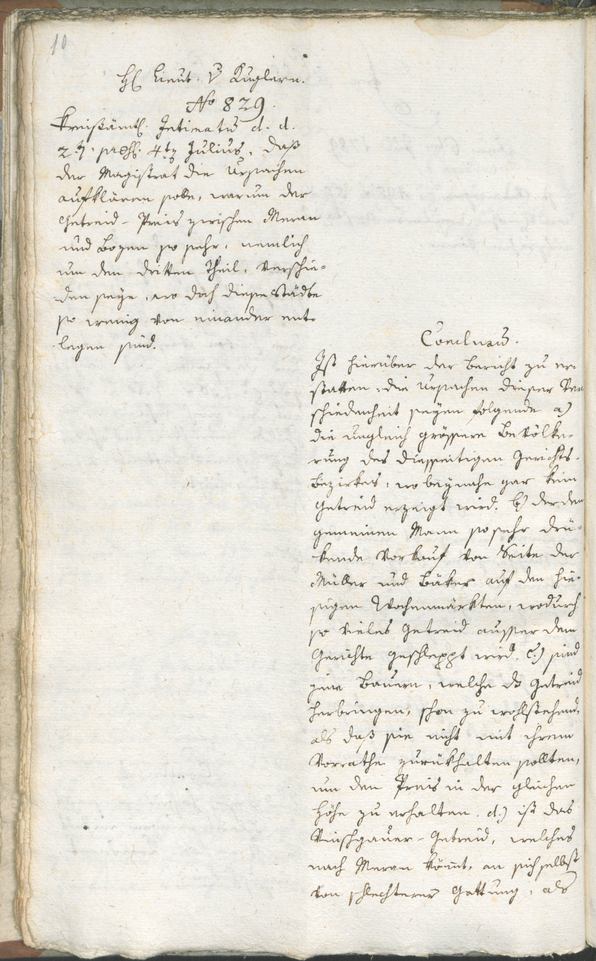 10
H. Lieut. v. Kuglern.
No 829.
Kreisämtl. Intimatum d. d.
27. præs. 4ten Julius, daß
der Magistrat die Ursachen
aufklären solle, warum der
Getreid-Preis zwischen Meran
und Bozen so sehr, nemlich
um den dritten Theil, verschie-
den seye, wo doch diese Städte
so wenig von einander ent-
legen sind.
Conclusum.
Ist hierüber der Bericht zu er-
statten, die Ursachen dieser Ver-
schiedenheit seyen folgende a)
die ungleich grössere Bevölke-
rung des diesseitigen Gerichts-
Bezirkes, wo beynahe gar kein
Getreid erzeigt wird. b) der dem
gemeinen Mann so sehr drü-
kende Vorkauf von Seite der
Müller und Bäker auf den hie-
sigen Wochenmärkten, wodurch
so vieles Getreid ausser dem
Gerichte geschleppt wird. c) sind
jene Bauern, welche das Getreid
herbringen, schon zu wohlstehend,
als daß sie nicht mit ihrem
Vorrathe zurükhalten sollten,
um den Preis in der gleichen
Höhe zu erhalten. d.) ist das
Vinschgauer-Getreid, welches
nach Meran kömt, an sich selbst
von schlechterer Gattung, als